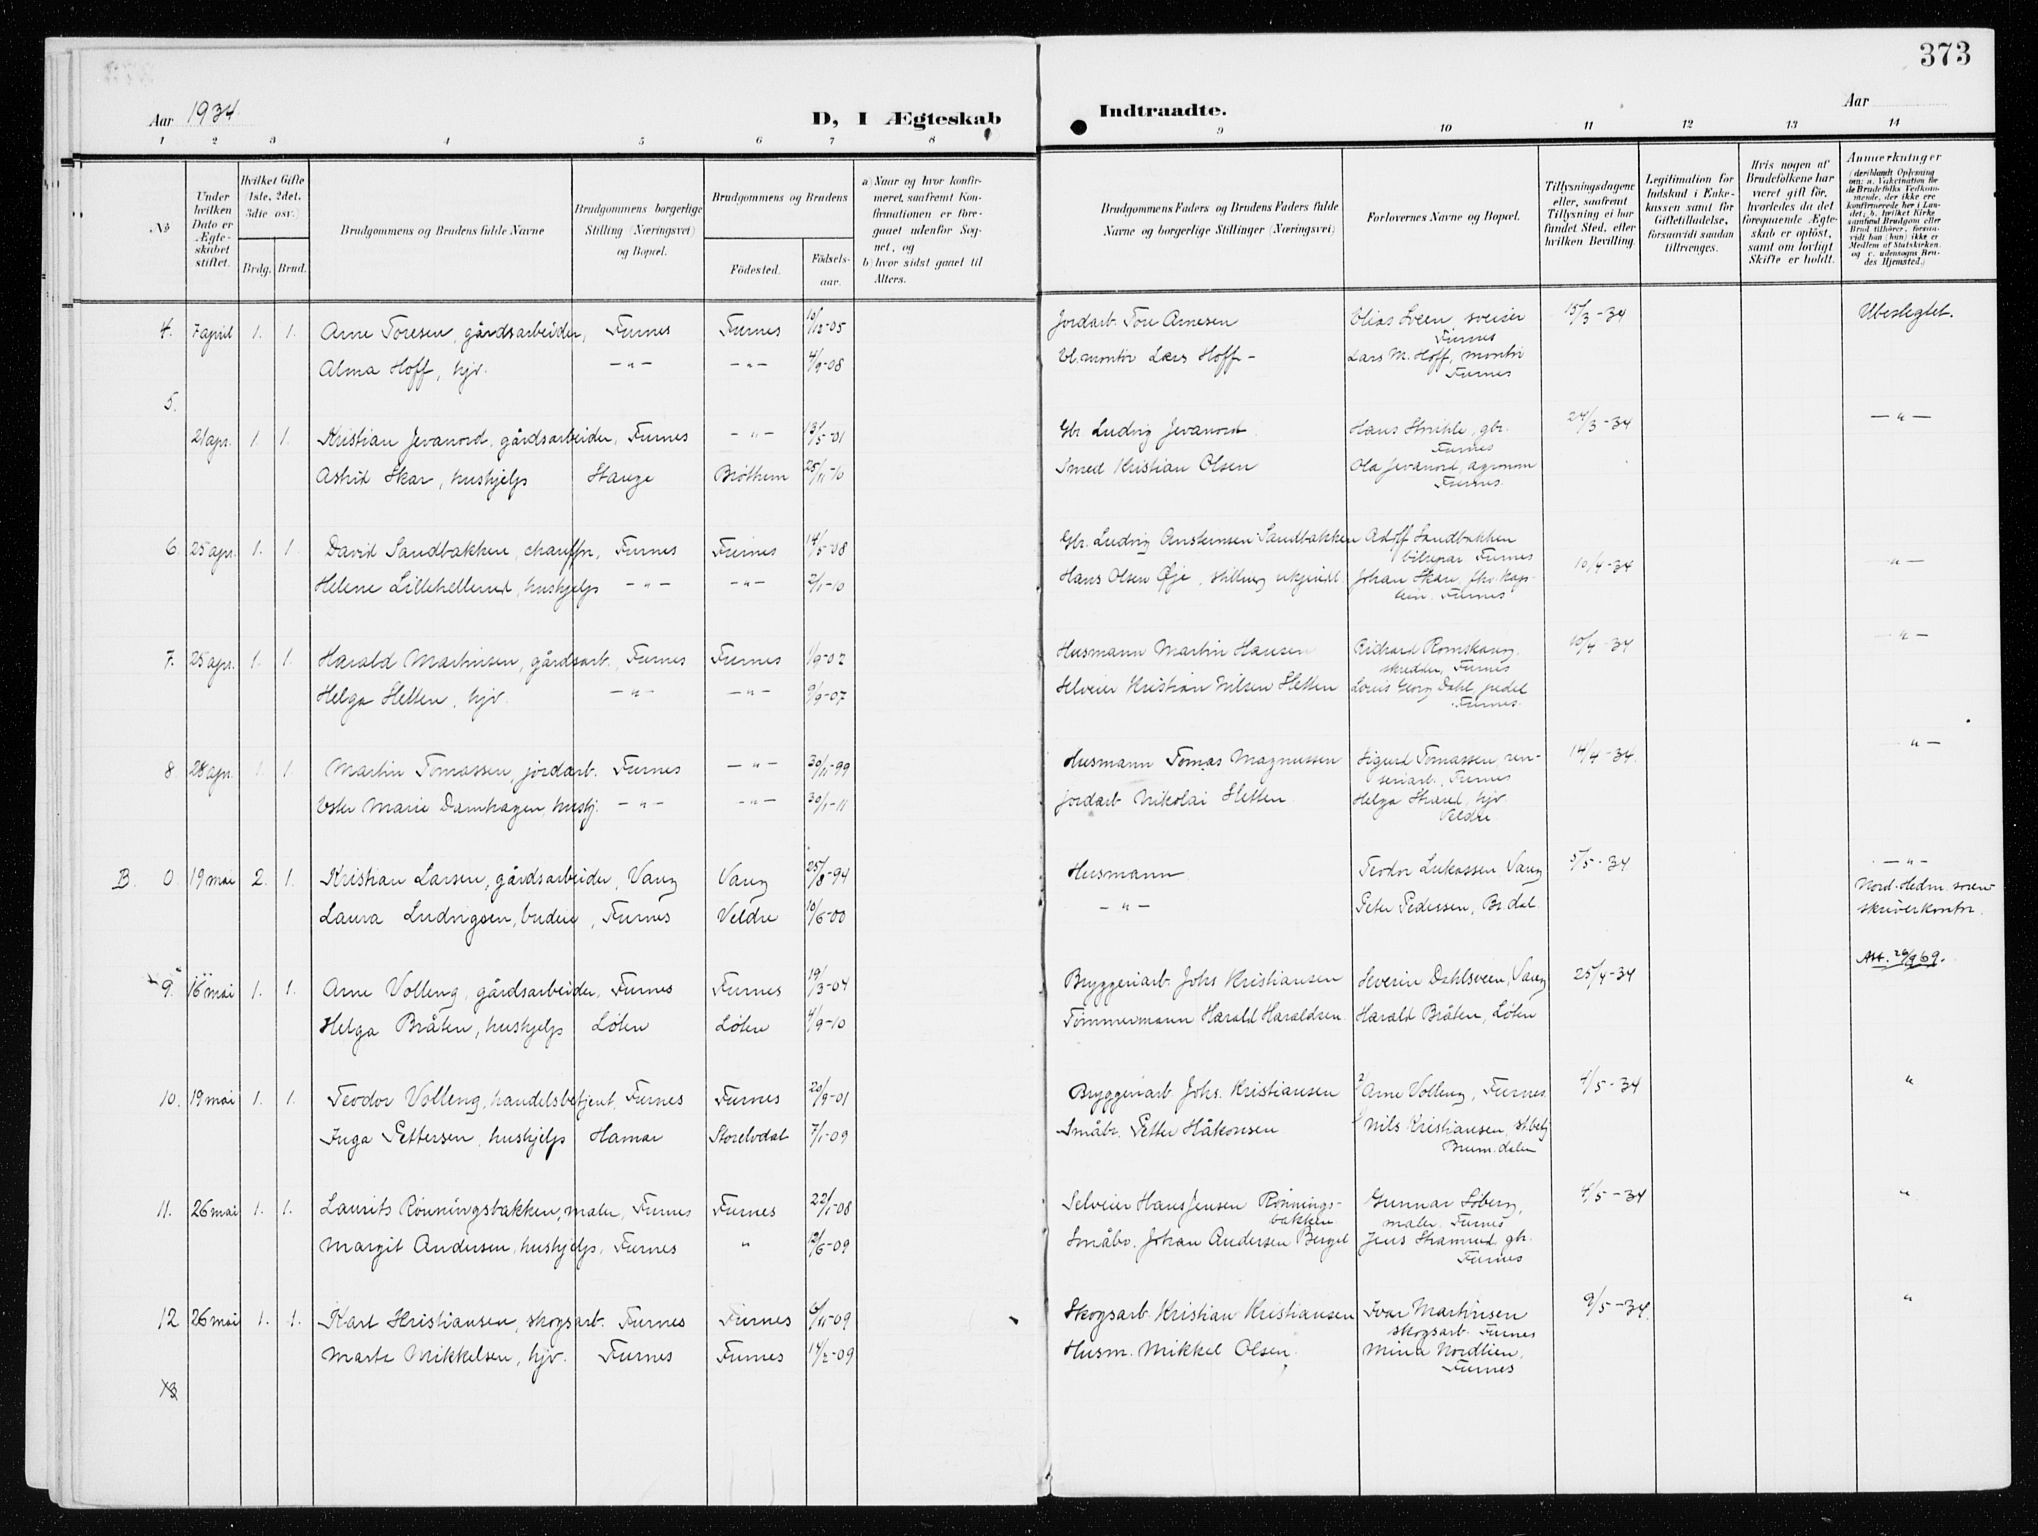 373
Aar 1934. D, I Ægteskab Indtraadte. Aar
1 2 3 4 5 6 7 8 9 10 11 12 13 14
No
Under hvilken Dato er Ægteskabet stiftet.
Hvilket Gifte (1ste, 2det, 3die osv.)
Brdg. Brud.
Brudgommens og Brudens fulde Navne
Brudgommens borgerlige Stilling (Næringsvei) og Bopæl.
Brudgommens og Brudens
Fødested.
Fødselsaar.
a) Naar og hvor konfirmeret, samfremt Konfirmationen er foregaaet udenfor Sognet, og
b) hvor sidst gaaet til Alters.
Brudgommens Faders og Brudens Faders fulde Navne og borgerlige Stillinger (Næringsvei)
Forlovernes Navne og Bopæl.
Tillysningsdagene eller, samfremt Tillysning ei har fundet Sted, efter hvilken Bevilling.
Legitimation for Indskud i Enkekassen samt for Giftetilladelse, forsaavidt saadan tiltrænges.
Hvis nogen af Brudefolkene har været gift før, hvorledes da det foregaaende Ægteskab er opløst, samt om lovligt Skifte er holdt.
Anmerkninger
4. 7 april 1. 1. Arne Toresen, gårdsarbeider, Furnes Furnes 10/12-05 Jordarb. Tore Arnesen Elias Sveen, sveiser Furnes 15/3-34 Ubeslegtet.
Alma Hoff, hjv. -"- -"- 4/9-08 El.montør Lars Hoff- Lars M. Hoff, montør Furnes
5.
21 apr. 1. 1. Kristian Jevanord, gårdsarbeider, Furnes -"- 13/5-01 Gbr. Ludvig Jevanord. Hans gbr. Furnes 24/3-34 -"-
Astrid Skar, hushjelp Stange Brøttum 25/11-10 Smed Kristian Olsen Ola Jevanord, agronom Furnes
6. 25 apr. 1. 1. David Sandbakken, chauffør, Furnes Furnes 14/5-08 Gbr. Ludvig Sandbakken Adolf Sandbakken bilrepar. Furnes 10/4-34 -"-
Helene Lillehellerud, hushjelp -"- -"- 2/1-10 Hans Olsen Øje, stilling ukjendt Johan Skar, Furnes
7. 25 apr. 1. 1. Harald Martinsen, gårdsarb., Furnes Furnes 1/9-02 Husmann Martin Hansen Rikhard Romskaug, skredder, Furnes 10/4-34 -"-
Helga Sletten, hjv. -"- -"- 9/9-07 Selveier Kristian Nilsen Sletten Louis Georg Dahl, pedel Furnes
8. 28 apr. 1. 1. Martin Tomassen, jordarb. Furnes -"- 20/11-99 Husmann Tomas Magnussen Sigurd Tomassen, renseriarb., Furnes 14/4-34. -"-
Ester Marie Damhagen, hushj. -"- -"- 30/1-11 Jordarb Nikolai Sletten Helga hjv. Veldre
B. 0. 19 mai 2. 1. Kristian Larsen, gårdsarbeider, Vang Vang 25/8-94 Husmann Teodor Lukassen, Vang 5/5-34 -"-
Nord-Hedm. sorenskriverkontor.
Laura Ludvigsen, budeie, Furnes Veldre 10/6-00 -"- Peter Pedersen, Br.dal.
Att. 26/9 69.
9. 16 mai 1. 1. Arne Volleng, gårdsarbeider, Furnes Furnes 19/3-04 Bryggeriarb. Johs Kristiansen Severin Dahlsveen, Vang 25/4-34
Helga Bråten, hushjelp Løten Løten 4/9-10 Tømmermann Harald Haraldsen Harald Bråten, Løten
10. 19 mai 1. 1. Teodor Volleng, handelsbetjent, Furnes Furnes 20/9-01 Bryggeriarb. Johs. Kristiansen Arne Volleng, Furnes 4/5-34 "
Inga Pettersen, hushjelp Hamar Storelvdal 7/1-09 Småbr. Petter Håkonsen Nils Kristiansen, st.betj Brum.dalen
11. 26 mai 1. 1. Laurits Rønningsbakken, maler, Furnes Furnes 22/1-08 Selveier Hans Jensen Rønningsbakken Gunnar Løberg, maler, Furnes 4/5-34 "
Margit Andersen, hushjelp, Furnes " 12/6-09 Småbr. Johan Andersen Berget Jens gbr. Furnes
12 26 mai 1. 1. Karl Kristiansen, skogsarb. Furnes Furnes 6/11-09 Skogsarb. Kristian Kristiansen Ivar Martinsen skogsarb. Furnes 9/5-34. "
Marte Mikkelsen, hjv. Furnes Furnes 14/2-09 Husm. Mikkel Olsen. Mina Nordlien, Furnes
13